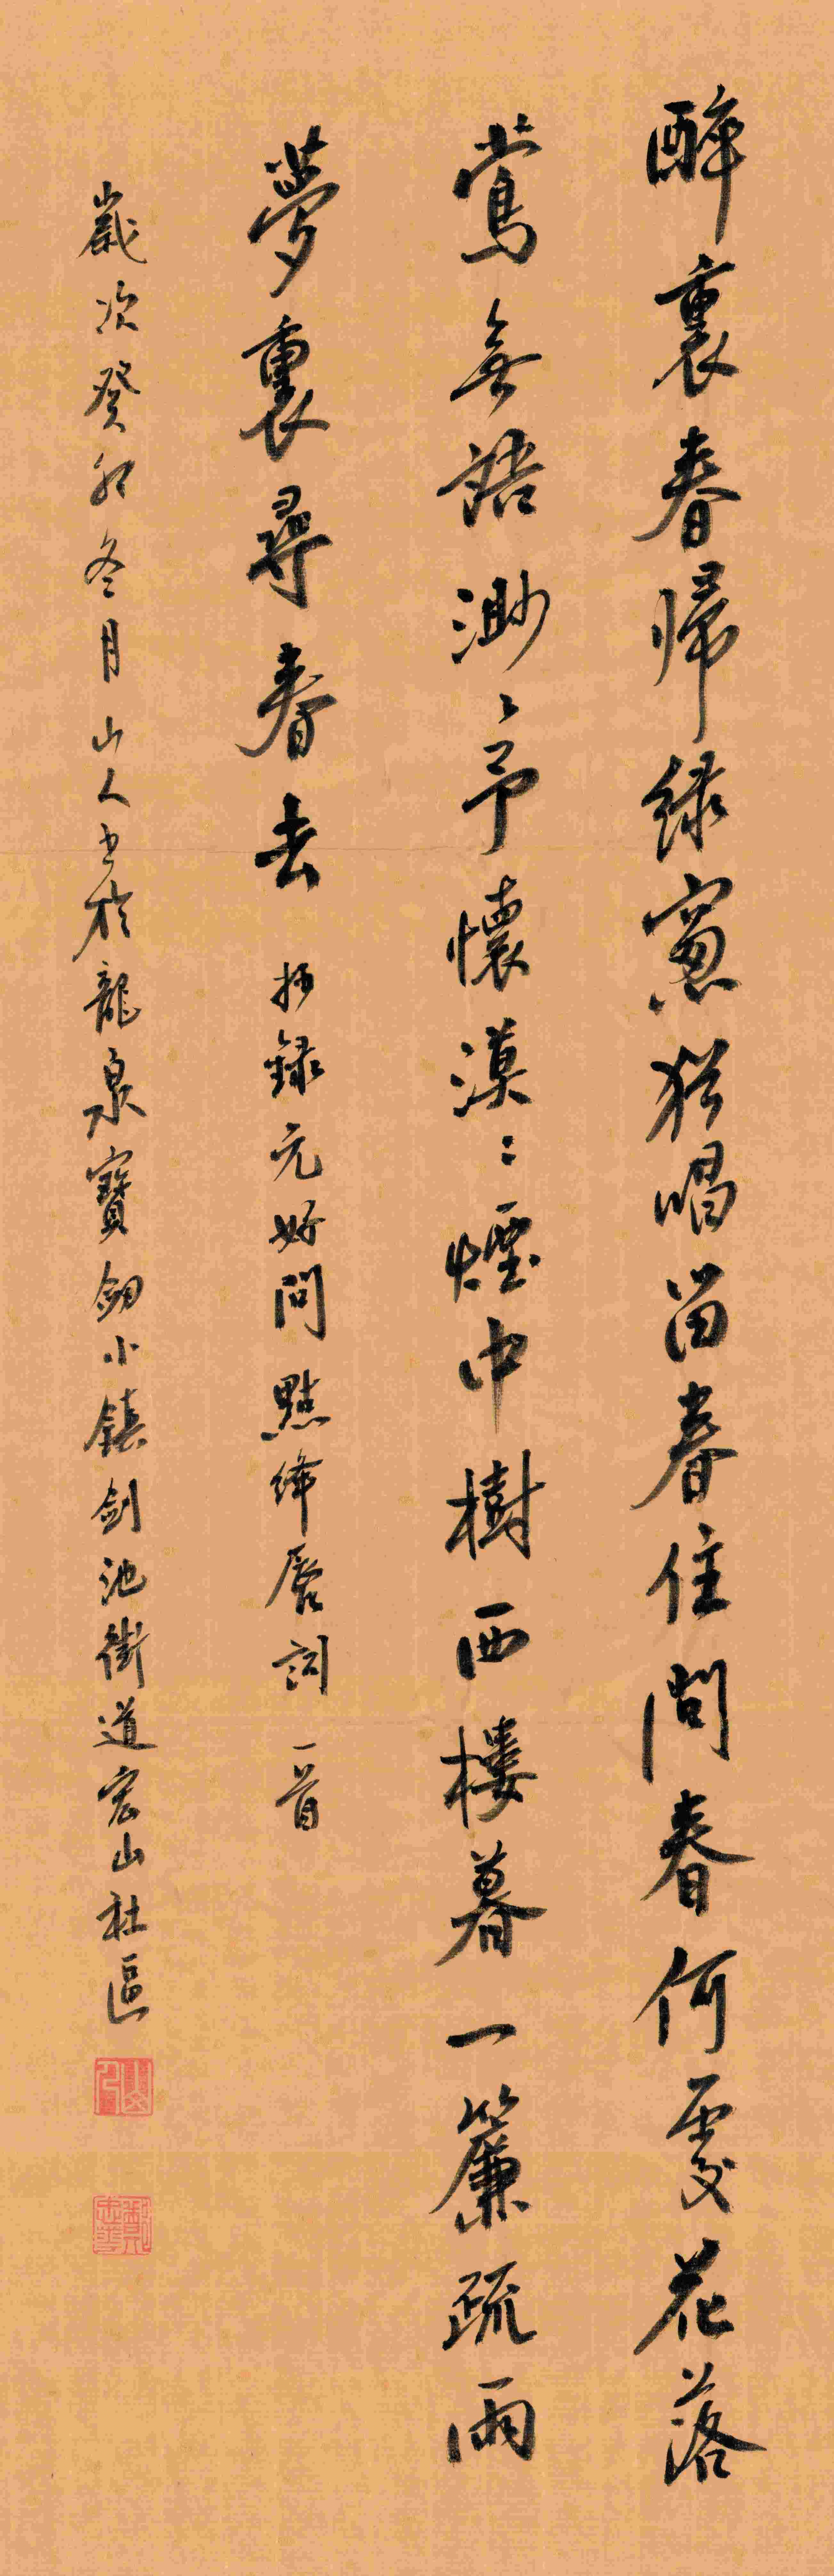 醉裏春歸綠窗猶唱留春住問春何處花落
鶯無語渺々予懷漠々煙中樹西樓暮一簾疏雨
夢裏尋春去 抄錄元好問點絳唇詞一首
歲次癸卯冬月山人書於龍泉寶劔小鎮剑池街道宏山社區